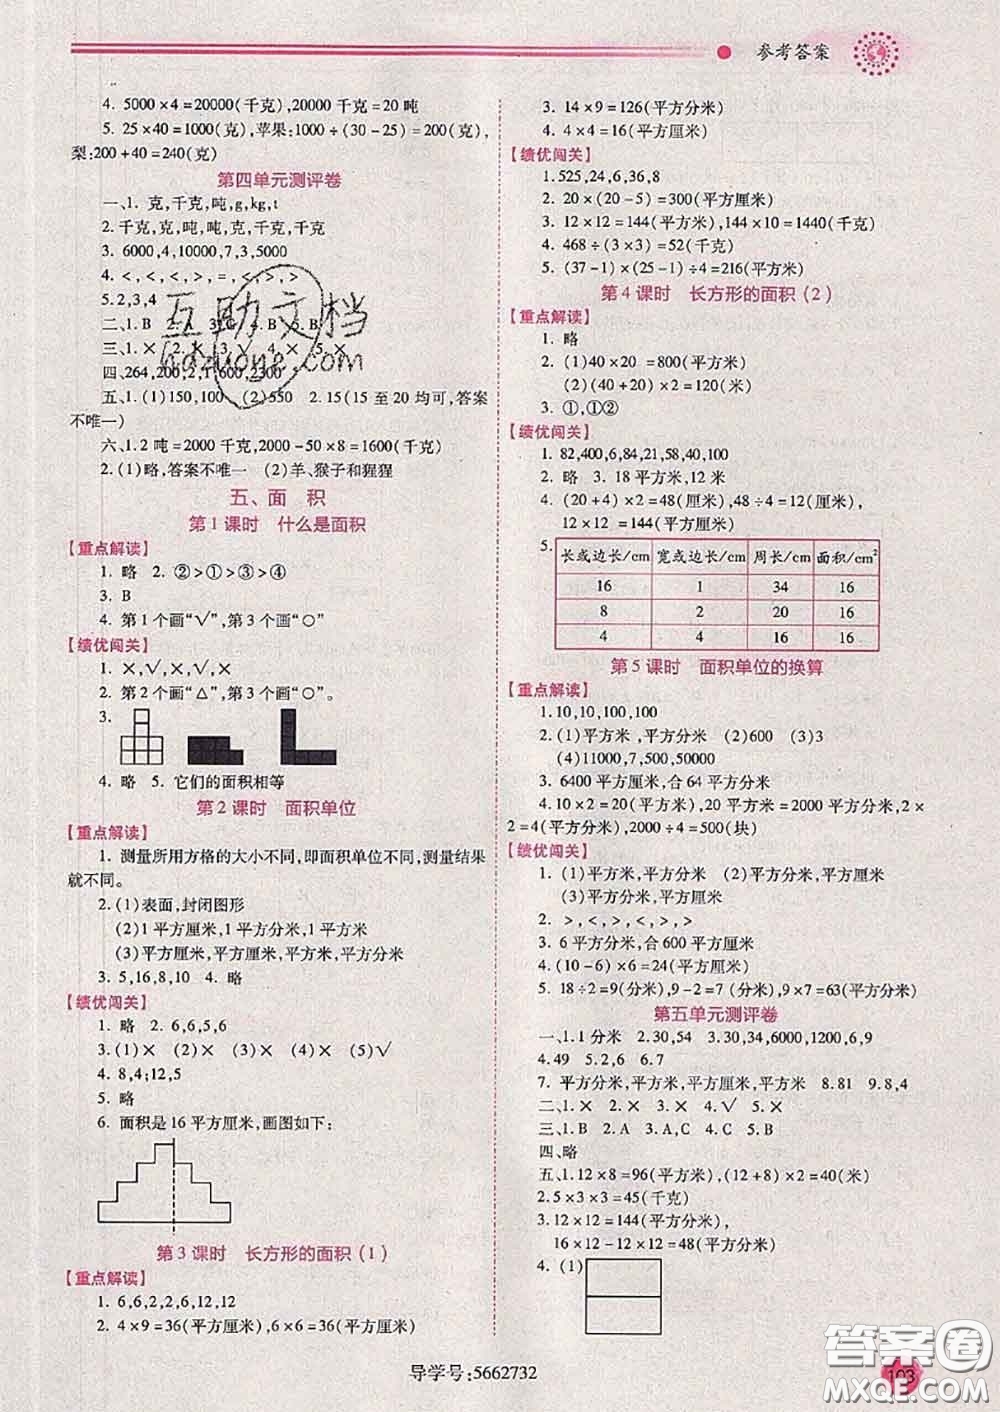 参考答案
4. 5000×4=20000(千克),20000千克=20吨
5. 25×40=1000(克),苹果:1000÷(30-25)=200(克),
梨:200+40=240(克)
第四单元测评卷
一、1. 克,千克,吨,g,kg,t
2. 千克,克,吨,吨,克,千克,千克
3. 6000,4,10000,7,3,5000
4. <,<,<,=,<,>,>
5.2,3,4
二、1.B 2.A 3.C 4.B 5.B
三、1.× 2.× 3.√ 4.× 5.×
四、264,200,2,1,600,2300
五、1.(1)150,100 (2)550 2.15(15至20均可,答案
不唯一)
六、1.2吨=2000千克,2000-50×8=1600(千克)
2.(1)略,答案不唯一 (2)羊、猴子和猩猩
五、面 积
第1课时 什么是面积
【重点解读】
1. 略 2. ②>①>③>④
3. B
4. 第1个画“√”,第3个画“○”
【绩优闯关】
1. ×,√,×,√,×
2. 第2个画“△”,第3个画“○”。
3.
4. 略 5. 它们的面积相等
第2课时 面积单位
【重点解读】
1. 测量所用方格的大小不同,即面积单位不同,测量结果
就不同。
2.(1)表面,封闭图形
(2)1平方厘米,1平方分米,1平方米
(3)平方厘米,平方厘米,平方米,平方分米
3. 5,16,8,10 4. 略
【绩优闯关】
1. 略 2. 6,6,5,6
3.(1)× (2)× (3)× (4)× (5)√
4. 8,4;12,5
5. 略
6. 面积是16平方厘米,画图如下:
第3课时 长方形的面积(1)
【重点解读】
1. 6,6,2,2,6,12,12
2. 4×9=36(平方厘米),6×6=36(平方厘米)
3. 14×9=126(平方分米)
4. 4×4=16(平方厘米)
【绩优闯关】
1.525,24,6,36,8
2. 20×(20-5)=300(平方厘米)
3. 12×12=144(平方米),144×10=1440(千克)
4. 468÷(3×3)=52(千克)
5. (37-1)×(25-1)÷4=216(平方厘米)
第4课时 长方形的面积(2)
【重点解读】
1. 略
2. (1)40×20 =800(平方米)
(2)(40+20)×2=120(米)
3. ①,①②
【绩优闯关】
1. 82,400,6,84,21,58,40,100
2. 略 3. 18平方米,12米
4. (20+4)×2=48(厘米),48÷4=12(厘米),
12×12 =144(平方厘米)
5. 长或边长/cm 宽或边长/cm 周长/cm 面积/cm²
16 1 34 16
8 2 20 16
4 4 16 16
第5课时 面积单位的换算
【重点解读】
1.10,10,100,100
2. (1)平方米,平方分米 (2)600 (3)3
(4)11000,7,500,50000
3. 6400平方厘米,合64平方分米
4.10×2=20(平方米),20平方米=2000平方分米,2×
2=4(平方分米),2000÷4=500(块)
【绩优闯关】
1. (1)平方米,平方分米 (2)平方米,平方厘米
(3)平方米,平方厘米
2. >,<,>,<,>,>
3. 6平方分米,合600平方厘米
4. (10-6)×6=24(平方厘米)
5. 18÷2=9(分米),9-2=7(分米),9×7=63(平方分米)
第五单元测评卷
一、1.1分米 2.30,54 3.30,34,6000,1200,6,9
4.49 5.2,6 6.7
7. 平方分米,平方厘米,平方米,平方分米 8.81 9.8,4
二、1.× 2.× 3.× 4.√ 5.×
三、1.B 2.A 3.A,C 4.C 5.B
四、略
五、1.12×8=96(平方米),(12+8)×2=40(米)
2.5×3×3=45(千克)
3.12×12=144(平方分米),
16×12-12×12=48(平方分米)
4. (1)
导学号:5662732
103
互助文档
答案圈
MXQE.COM